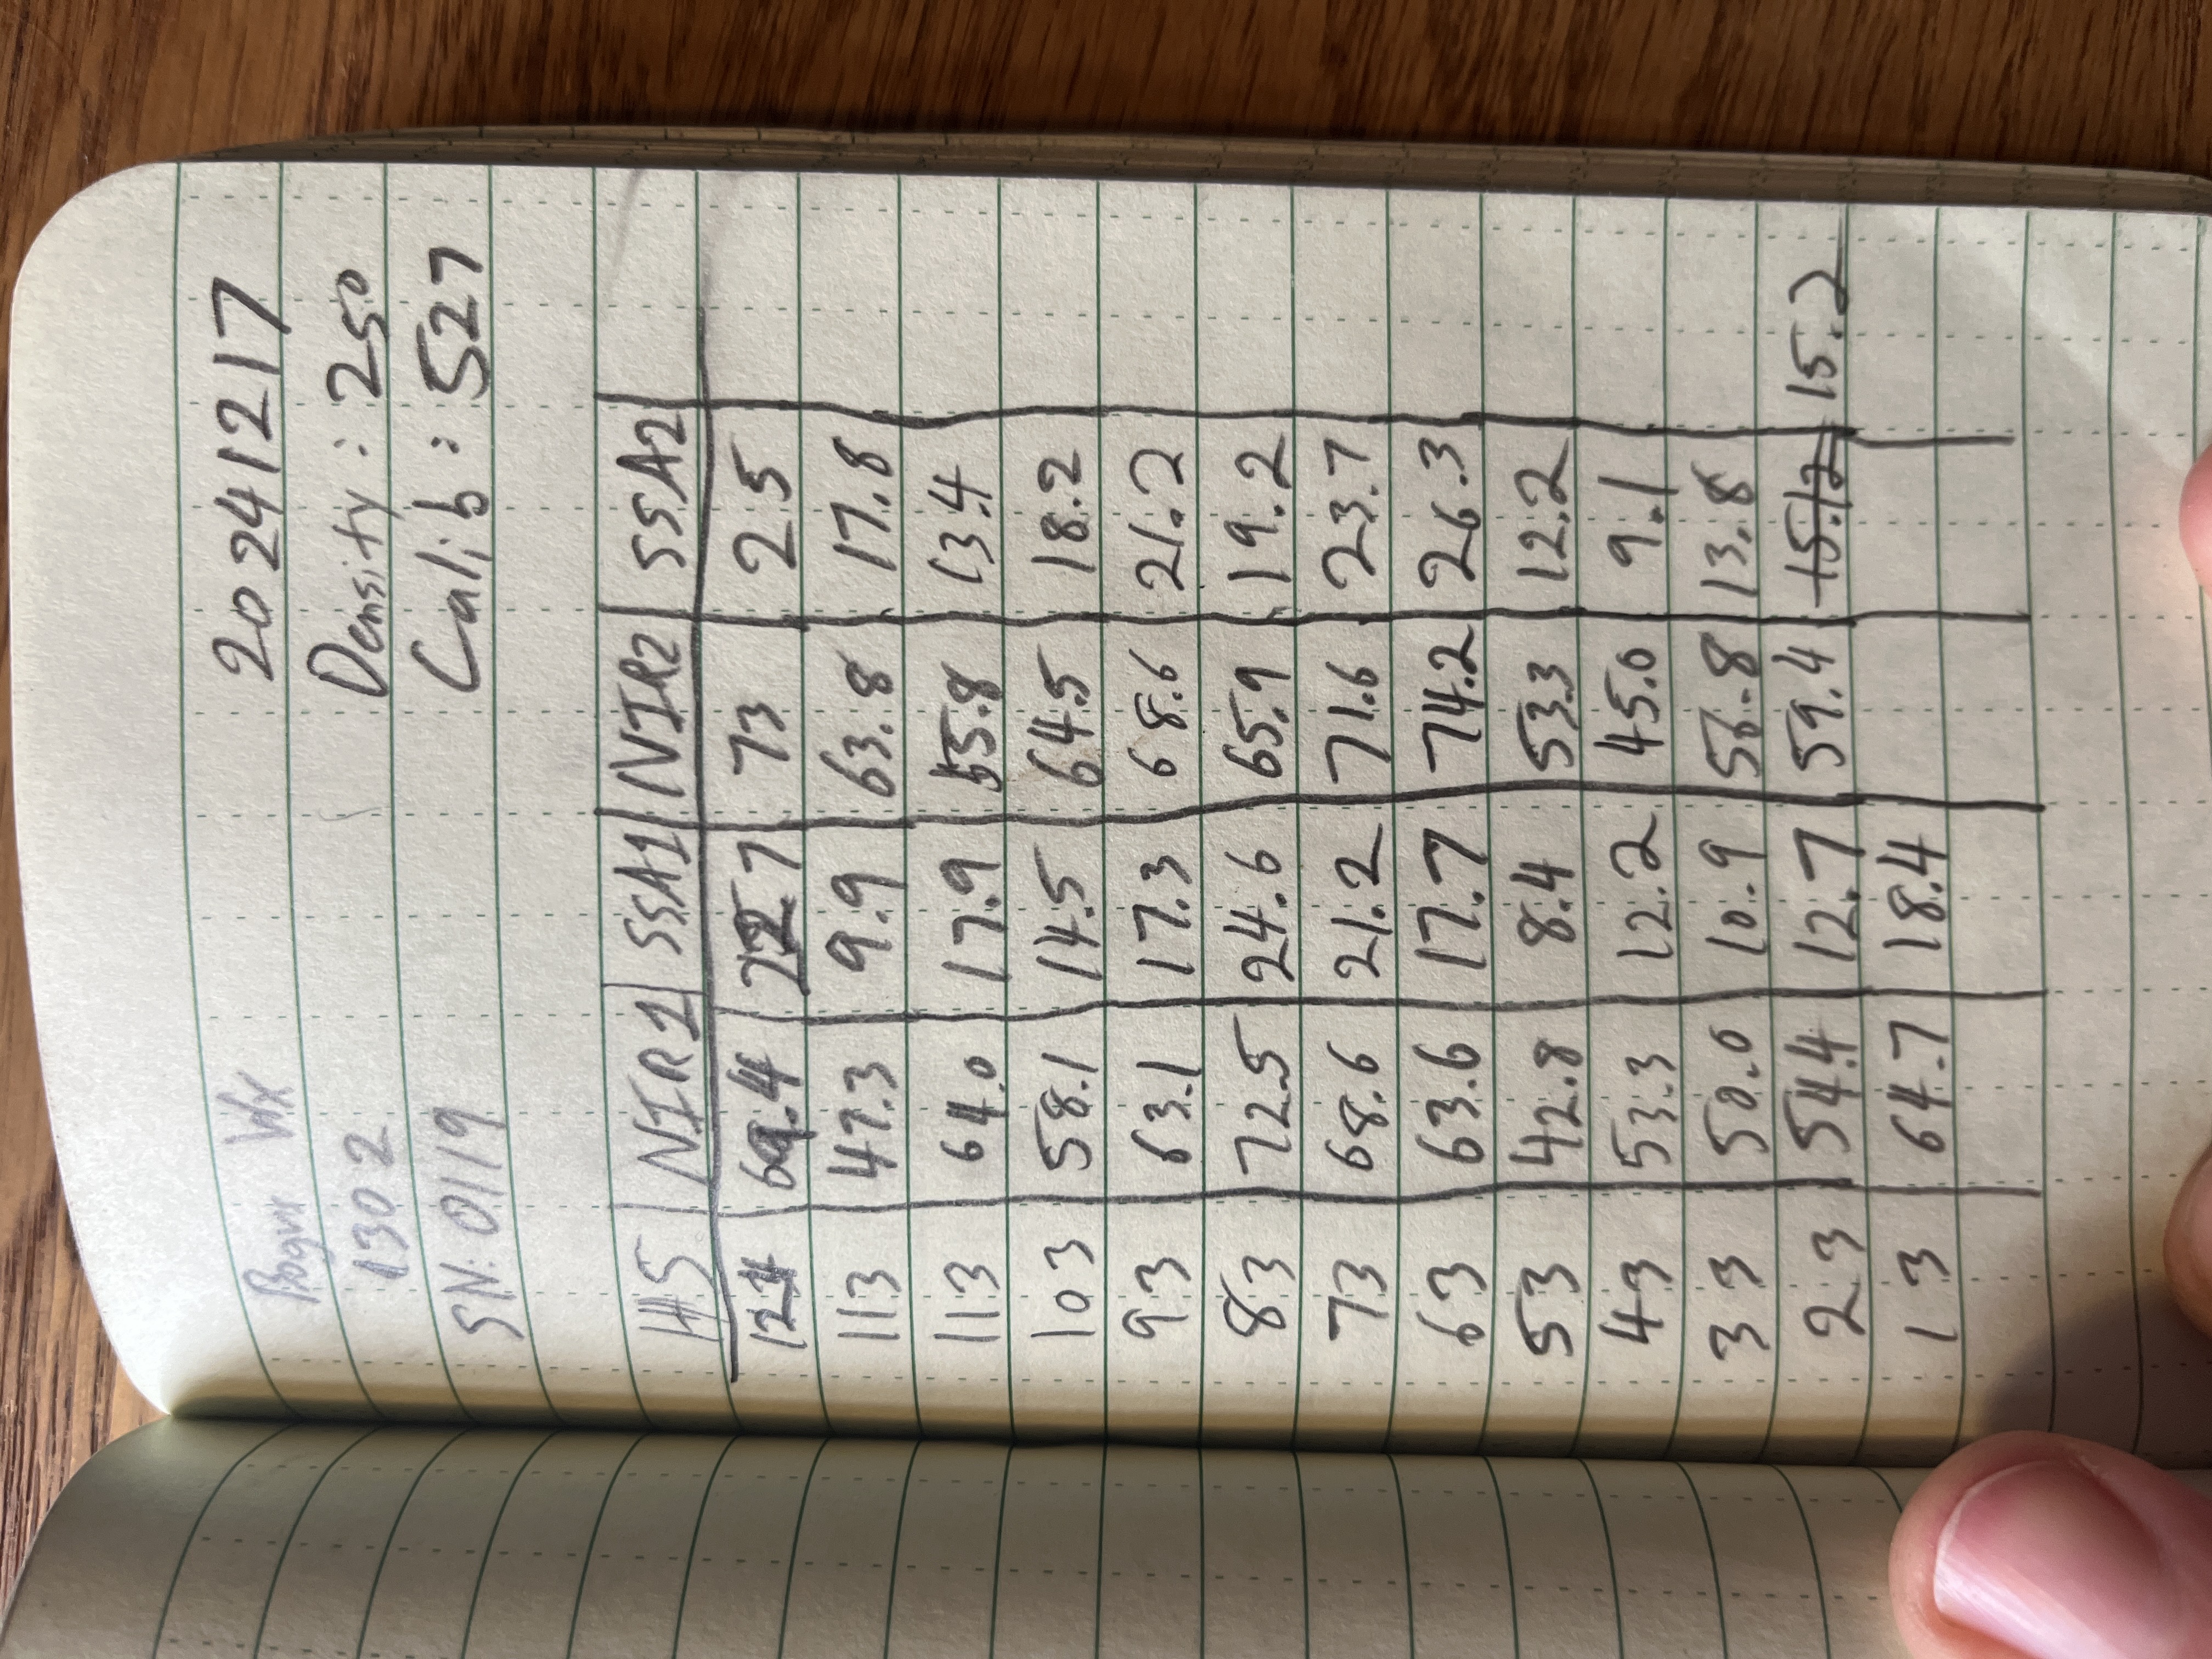 Bogus Wx 20241217
1302 Density: 250
SN: 0119 Calib: 527
HS NIR1 SSA1 NIR2 SSA2
69.4 22.7 73 25
113 47.3 9.9 63.8 17.8
113 64.0 17.9 55.8 13.4
103 58.1 14.5 64.5 18.2
93 63.1 17.3 68.6 21.2
83 72.5 24.6 65.9 19.2
73 68.6 21.2 71.6 23.7
63 63.6 17.7 74.2 26.3
53 42.8 8.4 53.3 12.2
43 53.3 12.2 45.0 9.1
33 50.0 10.9 56.8 13.8
23 54.4 12.7 59.4 15.12 15.2
13 64.7 18.4